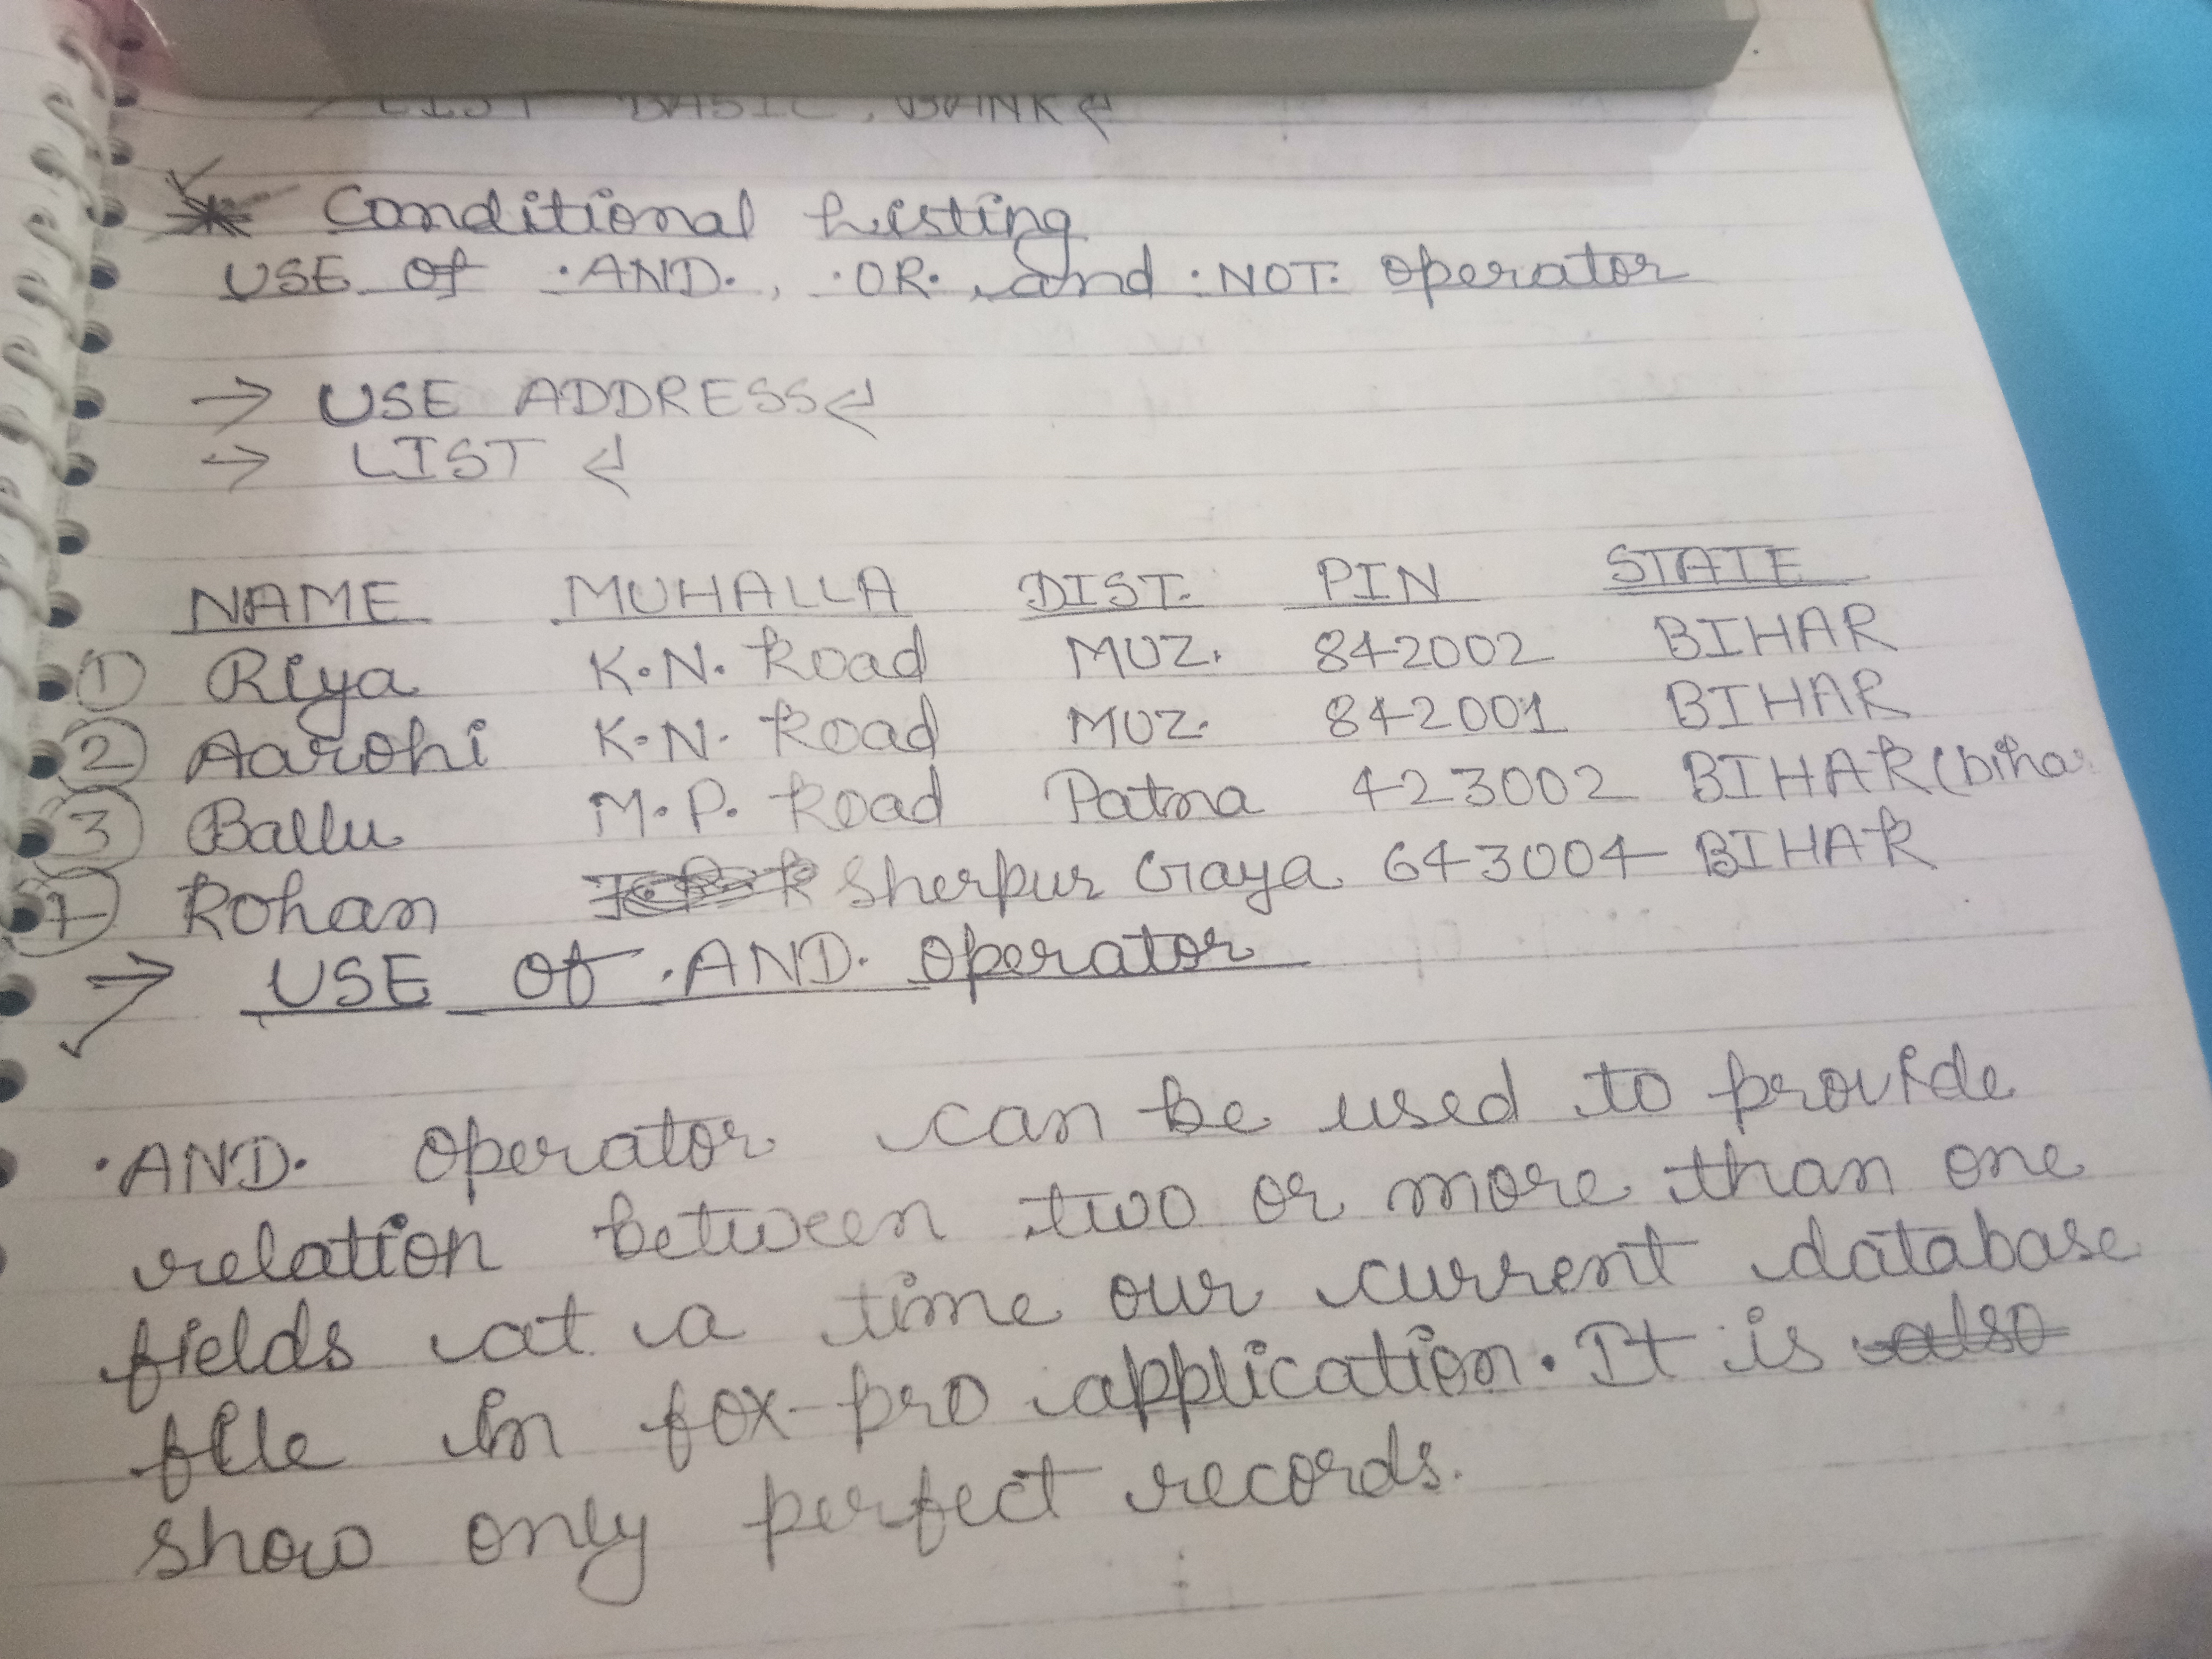 LIST BASIC, BANK
* Conditional Listing
USE Of .AND., .OR. and .NOT. operator
→ USE ADDRESS
→ LIST
NAME MUHALLA DIST. PIN STATE
1 Riya K.N. Road MUZ. 842002 BIHAR
2 Aarohi K.N. Road MUZ. 842001 BIHAR
3 Ballu M.P. Road Patna 423002 BIHAR (biha
4 Rohan Sherpur Gaya 643004 BIHAR
→ USE Of .AND. operator
.AND. operator can be used to provide
relation between two or more than one
fields at a time our current database
file in fox-pro application. It is also
show only perfect records.